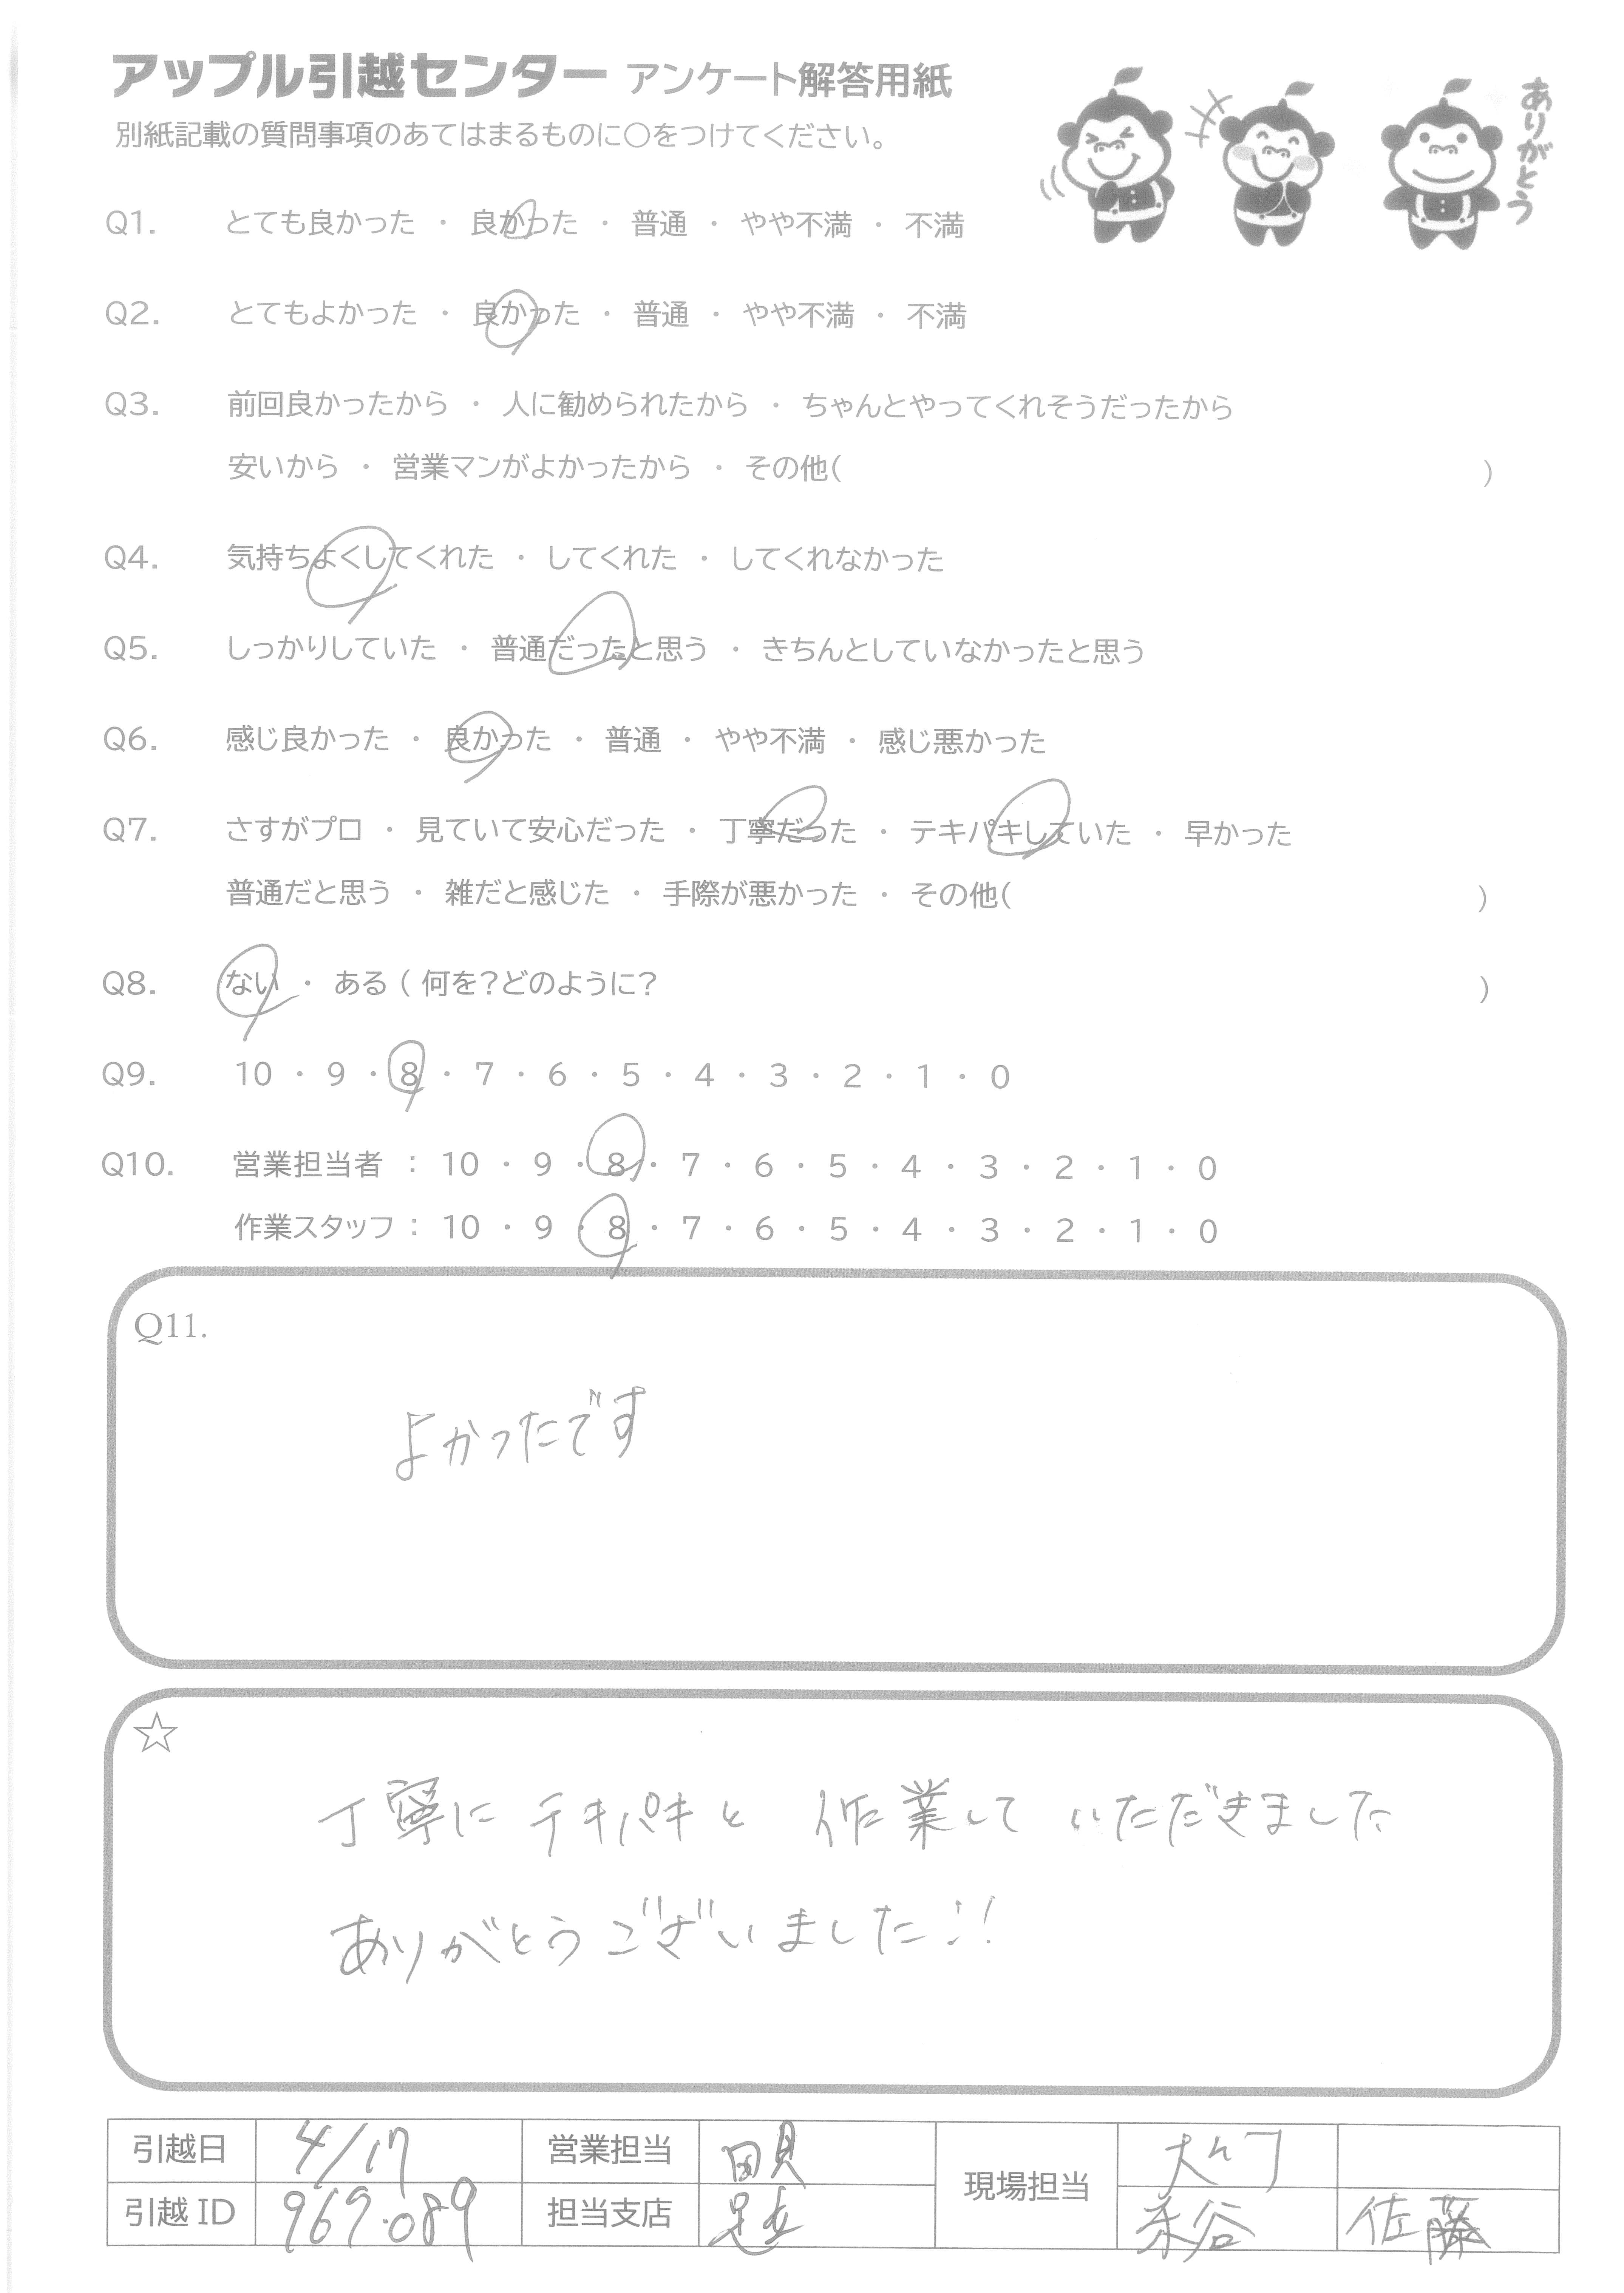 アップル引越センター アンケート解答用紙
別紙記載の質問事項のあてはまるものに○をつけてください。
ありがとう
Q1. とても良かった ・ 良かった ・ 普通 ・ やや不満 ・ 不満
Q2. とてもよかった ・ 良かった ・ 普通 ・ やや不満 ・ 不満
Q3. 前回良かったから ・ 人に勧められたから ・ ちゃんとやってくれそうだったから
安いから ・ 営業マンがよかったから ・ その他( )
Q4. 気持ちよくしてくれた ・ してくれた ・ してくれなかった
Q5. しっかりしていた ・ 普通だったと思う ・ きちんとしていなかったと思う
Q6. 感じ良かった ・ 良かった ・ 普通 ・ やや不満 ・ 感じ悪かった
Q7. さすがプロ ・ 見ていて安心だった ・ 丁寧だった ・ テキパキしていた ・ 早かった
普通だと思う ・ 雑だと感じた ・ 手際が悪かった ・ その他( )
Q8. ない ・ ある ( 何を?どのように? )
Q9. 10 ・ 9 ・ 8 ・ 7 ・ 6 ・ 5 ・ 4 ・ 3 ・ 2 ・ 1 ・ 0
Q10. 営業担当者 : 10 ・ 9 ・ 8 ・ 7 ・ 6 ・ 5 ・ 4 ・ 3 ・ 2 ・ 1 ・ 0
作業スタッフ : 10 ・ 9 ・ 8 ・ 7 ・ 6 ・ 5 ・ 4 ・ 3 ・ 2 ・ 1 ・ 0
Q11.
よかったです
☆
丁寧に テキパキと 作業して いただきました
ありがとうございました!!
引越日 4/17 営業担当 現場担当
引越ID 969-089 担当支店 足立 佐藤